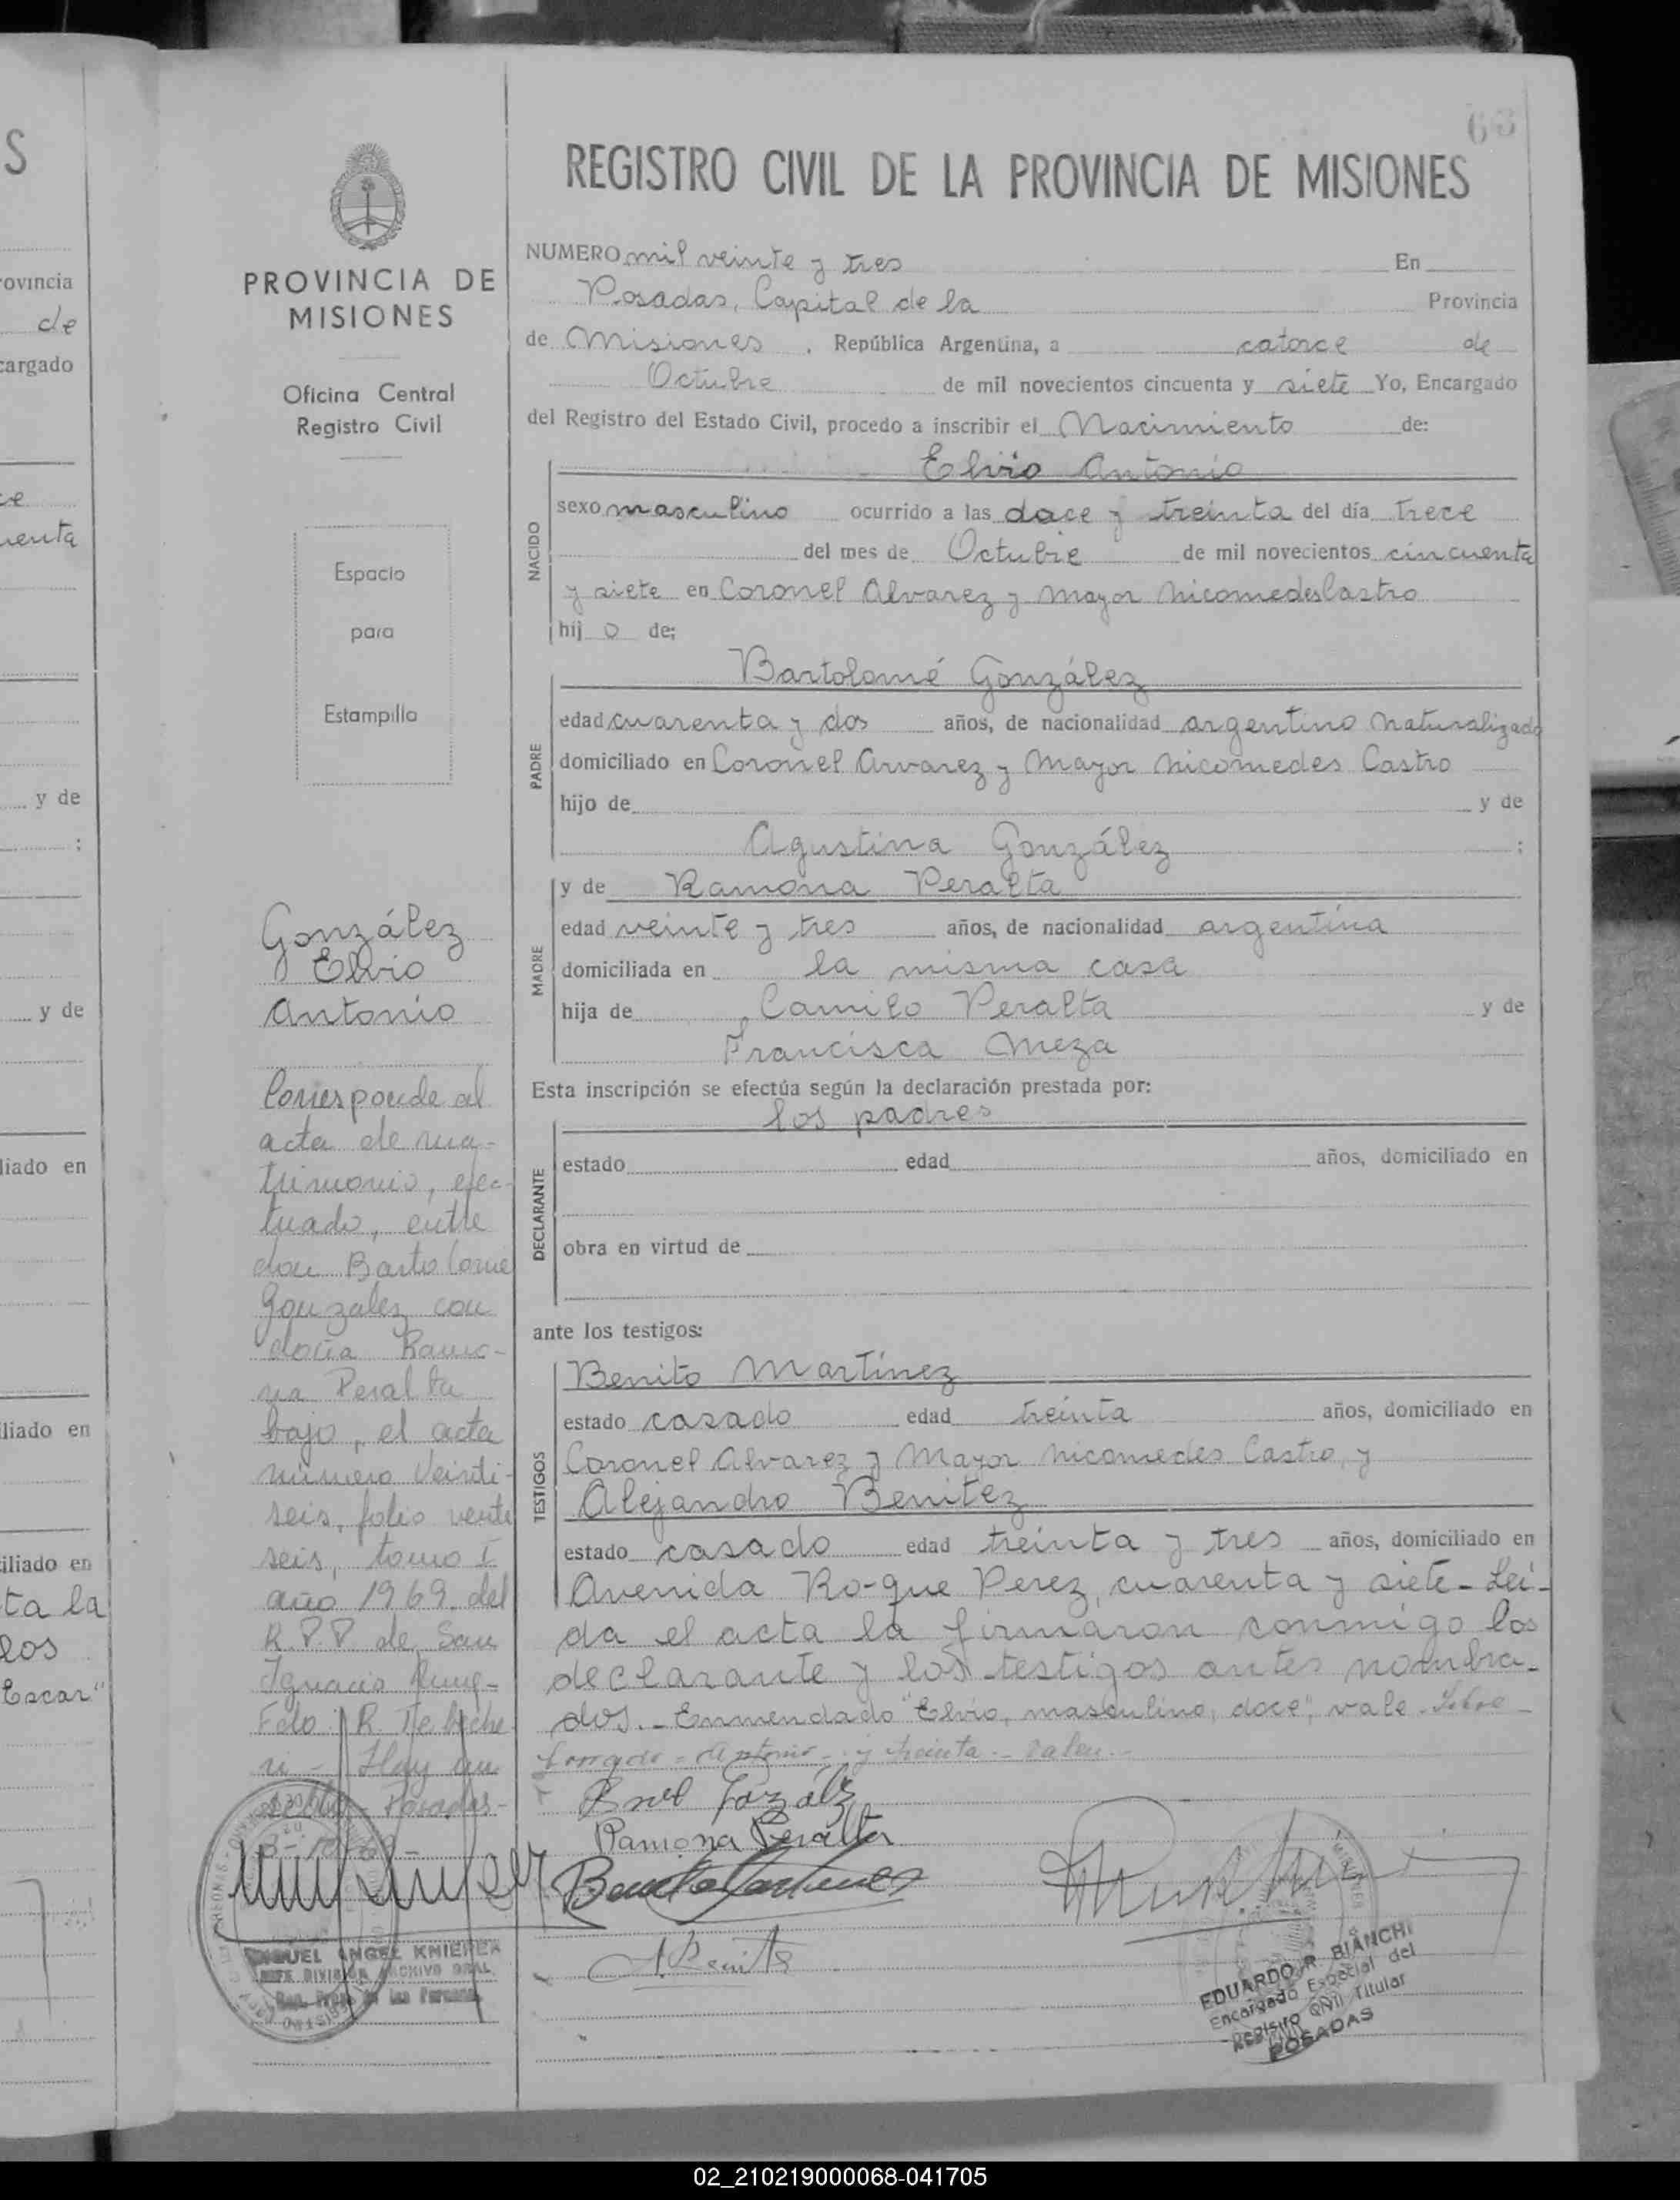 S
ovincia
de
cargado
ce
uenta
y de
:
y de
liado en
liado en
iliado en
ta la
los
Escar"
PROVINCIA DE
MISIONES
Oficina Central
Registro Civil
Espacio
para
Estampilla
González
Elvio
Antonio
Corresponde al
acta de ma-
trimonio, efec-
tuado, entre
don Bartolome
Gonzalez con
doña Ramo-
na Peralta
bajo, el acta
número Veinti-
seis, folio veinti
seis, tomo I
año 1969. del
R.P.P de San
Ignacio
Fdo: R.
Hay un
sello - Posadas-
MIGUEL ANGEL KNIEPER
JEFE DIVISION ARCHIVO GRAL.
Reg. Prov. de las Personas
68
REGISTRO CIVIL DE LA PROVINCIA DE MISIONES
NUMERO mil veinte y tres En
Posadas, Capital de la Provincia
de Misiones , República Argentina, a catorce de
Octubre de mil novecientos cincuenta y siete Yo, Encargado
del Registro del Estado Civil, procedo a inscribir el Nacimiento de:
Elvio Antonio
NACIDO
sexo masculino ocurrido a las doce y treinta del día trece
del mes de Octubre de mil novecientos cincuenta
y siete en Coronel Alvarez y Mayor Nicomedes Castro
hij o de:
Bartolomé González
PADRE
edad cuarenta y dos años, de nacionalidad argentino naturalizado
domiciliado en Coronel Arvarez y Mayor Nicomedes Castro
hijo de y de
Agustina González ;
y de Ramona Peralta
MADRE
edad veinte y tres años, de nacionalidad argentina
domiciliada en la misma casa
hija de Camilo Peralta y de
Francisca Meza
Esta inscripción se efectúa según la declaración prestada por:
los padres
DECLARANTE
estado edad años, domiciliado en
obra en virtud de
ante los testigos:
TESTIGOS
Benito Martínez
estado casado edad treinta años, domiciliado en
Coronel Alvarez y Mayor Nicomedes Castro, y
Alejandro Benitez
estado casado edad treinta y tres años, domiciliado en
Avenida Ro-que Perez, cuarenta y siete- Leí-
da el acta la firmaron conmigo los
declarante y los testigos antes nombra-
dos.- Enmendado "Elvio, masculino, doce", vale. Sobre
borrado = Antonio - y treinta - Valen.-
Ramona Peralta
Benito Martinez
A. Benitez
EDUARDO R. BIANCHI
Encargado Especial del
Registro Civil Titular
POSADAS
02_210219000068-041705